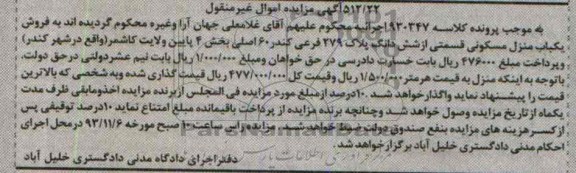 ۵۱۲/۲۲ آگهی مزایده اموال غیرمنقول
به موجب پرونده کلاسه ۹۳۰۳۴۷ اجرا محکوم علیهم آقای غلامعلی جهان آرا وغیره محکوم گردیده اند به فروش
یکباب منزل مسکونی قسمتی ازشش دانگ پلاک ۲۷۹ فرعی کندر ۶۰ اصلی بخش ۴ پایین ولایت کاشمر(واقع درشهر کندر)
وپرداخت مبلغ ۴۷۶۰۰۰ ریال بابت خسارت دادرسی در حق خواهان ومبلغ ۱/۰۰۰/۰۰۰ ریال بابت نیم عشردولتی درحق دولت.
باتوجه به اینکه منزل به قیمت هرمتر ۱/۵۰۰/۰۰۰ ریال وقیمت کل ۴۷۷/۰۰۰/۰۰۰ ریال قیمت گذاری شده وبه شخصی که بالاترین
قیمت را پیشنهاد نماید واگذارخواهد شد. ۱۰درصد ازمبلغ مورد مزایده فی المجلس ازبرنده مزایده اخذومابقی ظرف مدت
یکماه ازتاریخ مزایده وصول خواهد شد وچنانچه برنده مزایده از پرداخت باقیمانده مبلغ امتناع نماید ۱۰درصد توقیفی پس
ازکسرهزینه های مزایده بنفع صندوق دولت ضبط خواهد شد. مزایده راس ساعت ۱۰ صبح مورخه ۹۳/۱۱/۶ درمحل اجرای
احکام مدنی دادگستری خلیل آباد برگزارخواهد شد.
دفتراجرای دادگاه مدنی دادگستری خلیل آباد